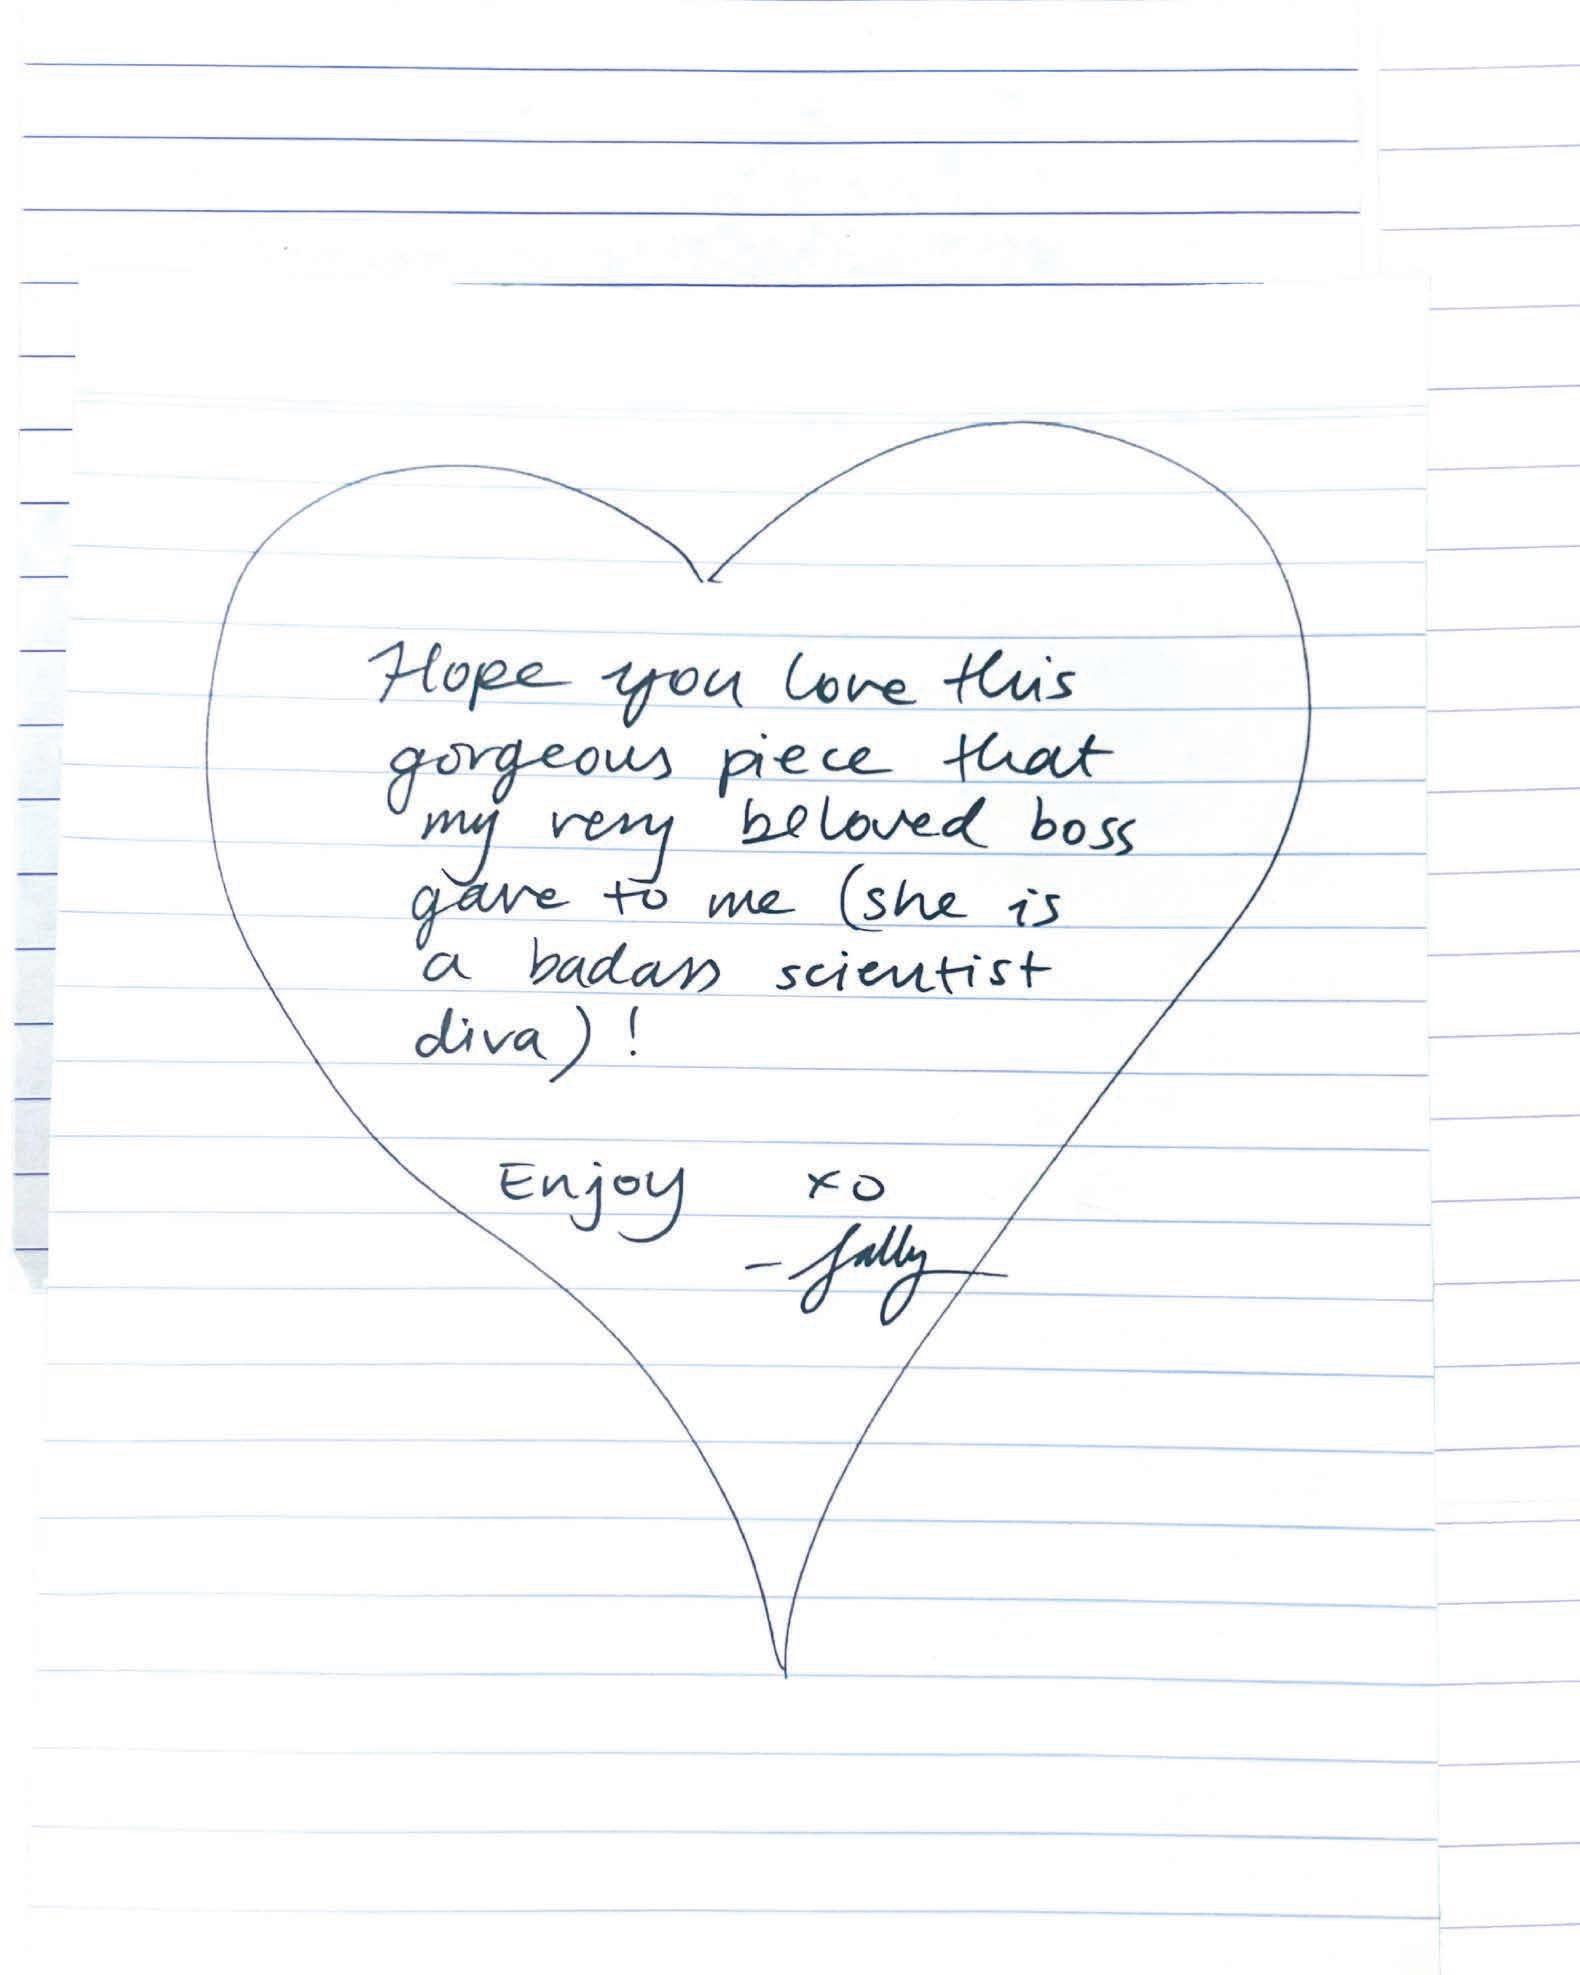 Hope you love this
gorgeous piece that
my very beloved boss
gave to me (she is
a badass scientist
diva)!
Enjoy xo
- Sally